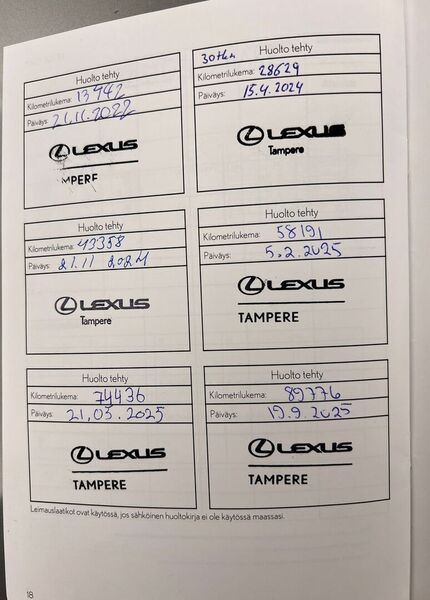 Huolto tehty
Kilometrilukema: 13942
Päiväys: 21.11.2022
LEXUS
MPERE
30tkm Huolto tehty
Kilometrilukema: 28629
Päiväys: 15.4.2024
LEXUS
Tampere
Huolto tehty
Kilometrilukema: 43358
Päiväys: 21.11 2024
LEXUS
Tampere
Huolto tehty
Kilometrilukema: 58191
Päiväys: 5.2.2025
LEXUS
TAMPERE
Huolto tehty
Kilometrilukema: 74436
Päiväys: 21.05.2025
LEXUS
TAMPERE
Huolto tehty
Kilometrilukema: 89776
Päiväys: 19.9.2025
LEXUS
TAMPERE
Leimauslaatikot ovat käytössä, jos sähköinen huoltokirja ei ole käytössä maassasi.
18